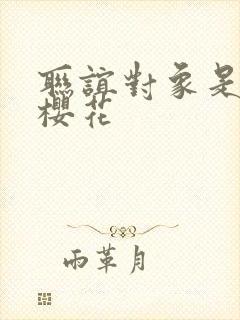 聯誼對象是
櫻花
雨革月